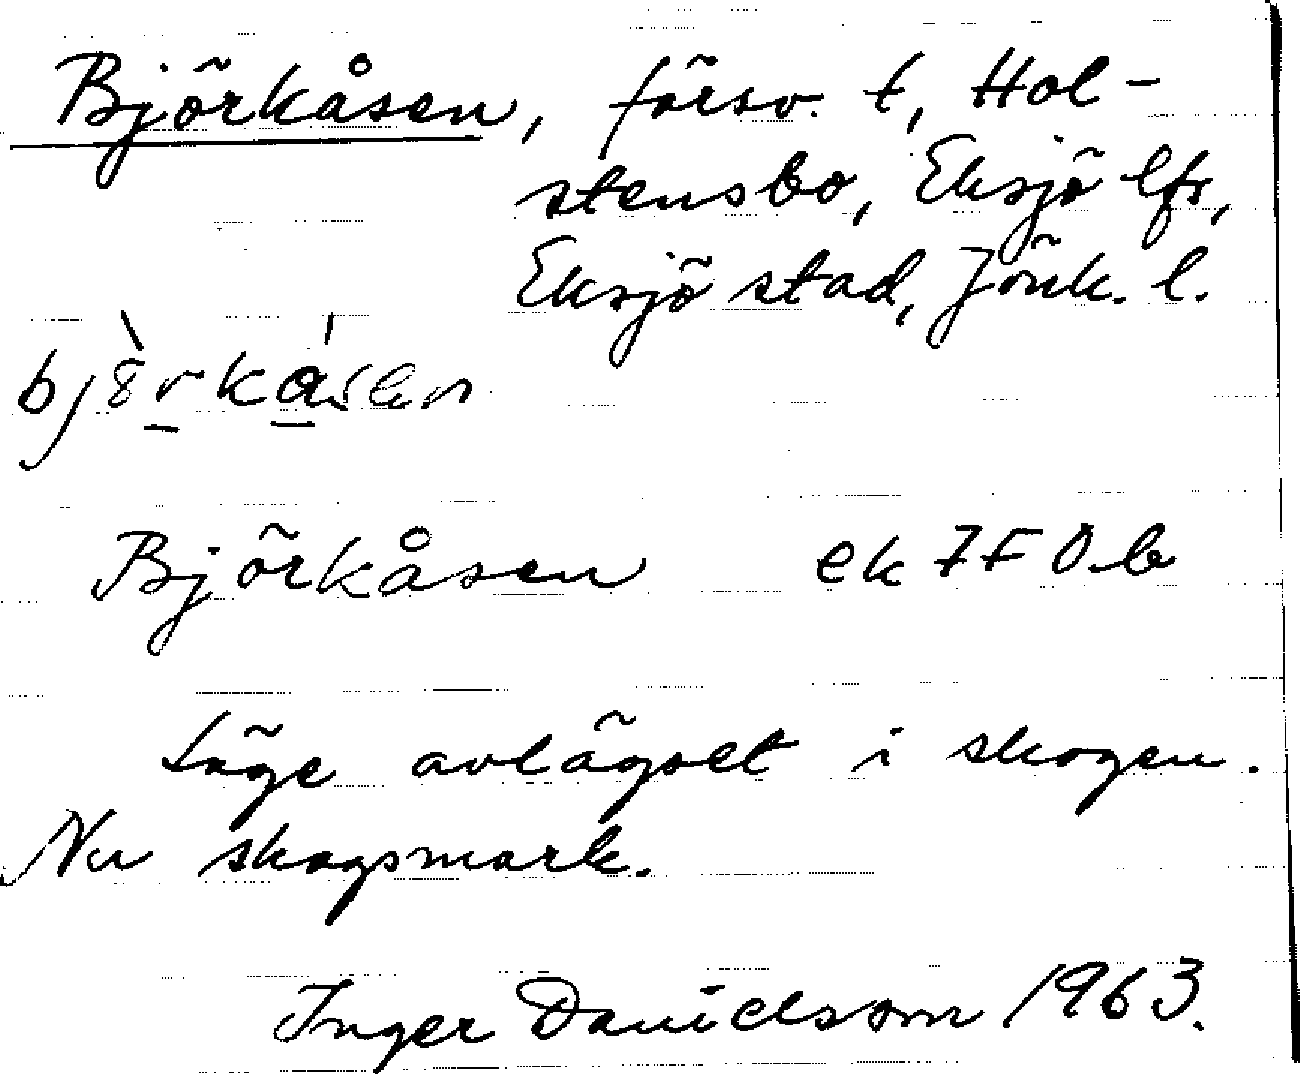 Björkåsen, försv. t, Hol-
stensbo, Eksjö lfs,
Eksjö stad, Jönk. l.
Björkåsen ek 7F 0b
Läge avlägset i skogen.
Nu skogsmark.
Inger Danielsson 1963.